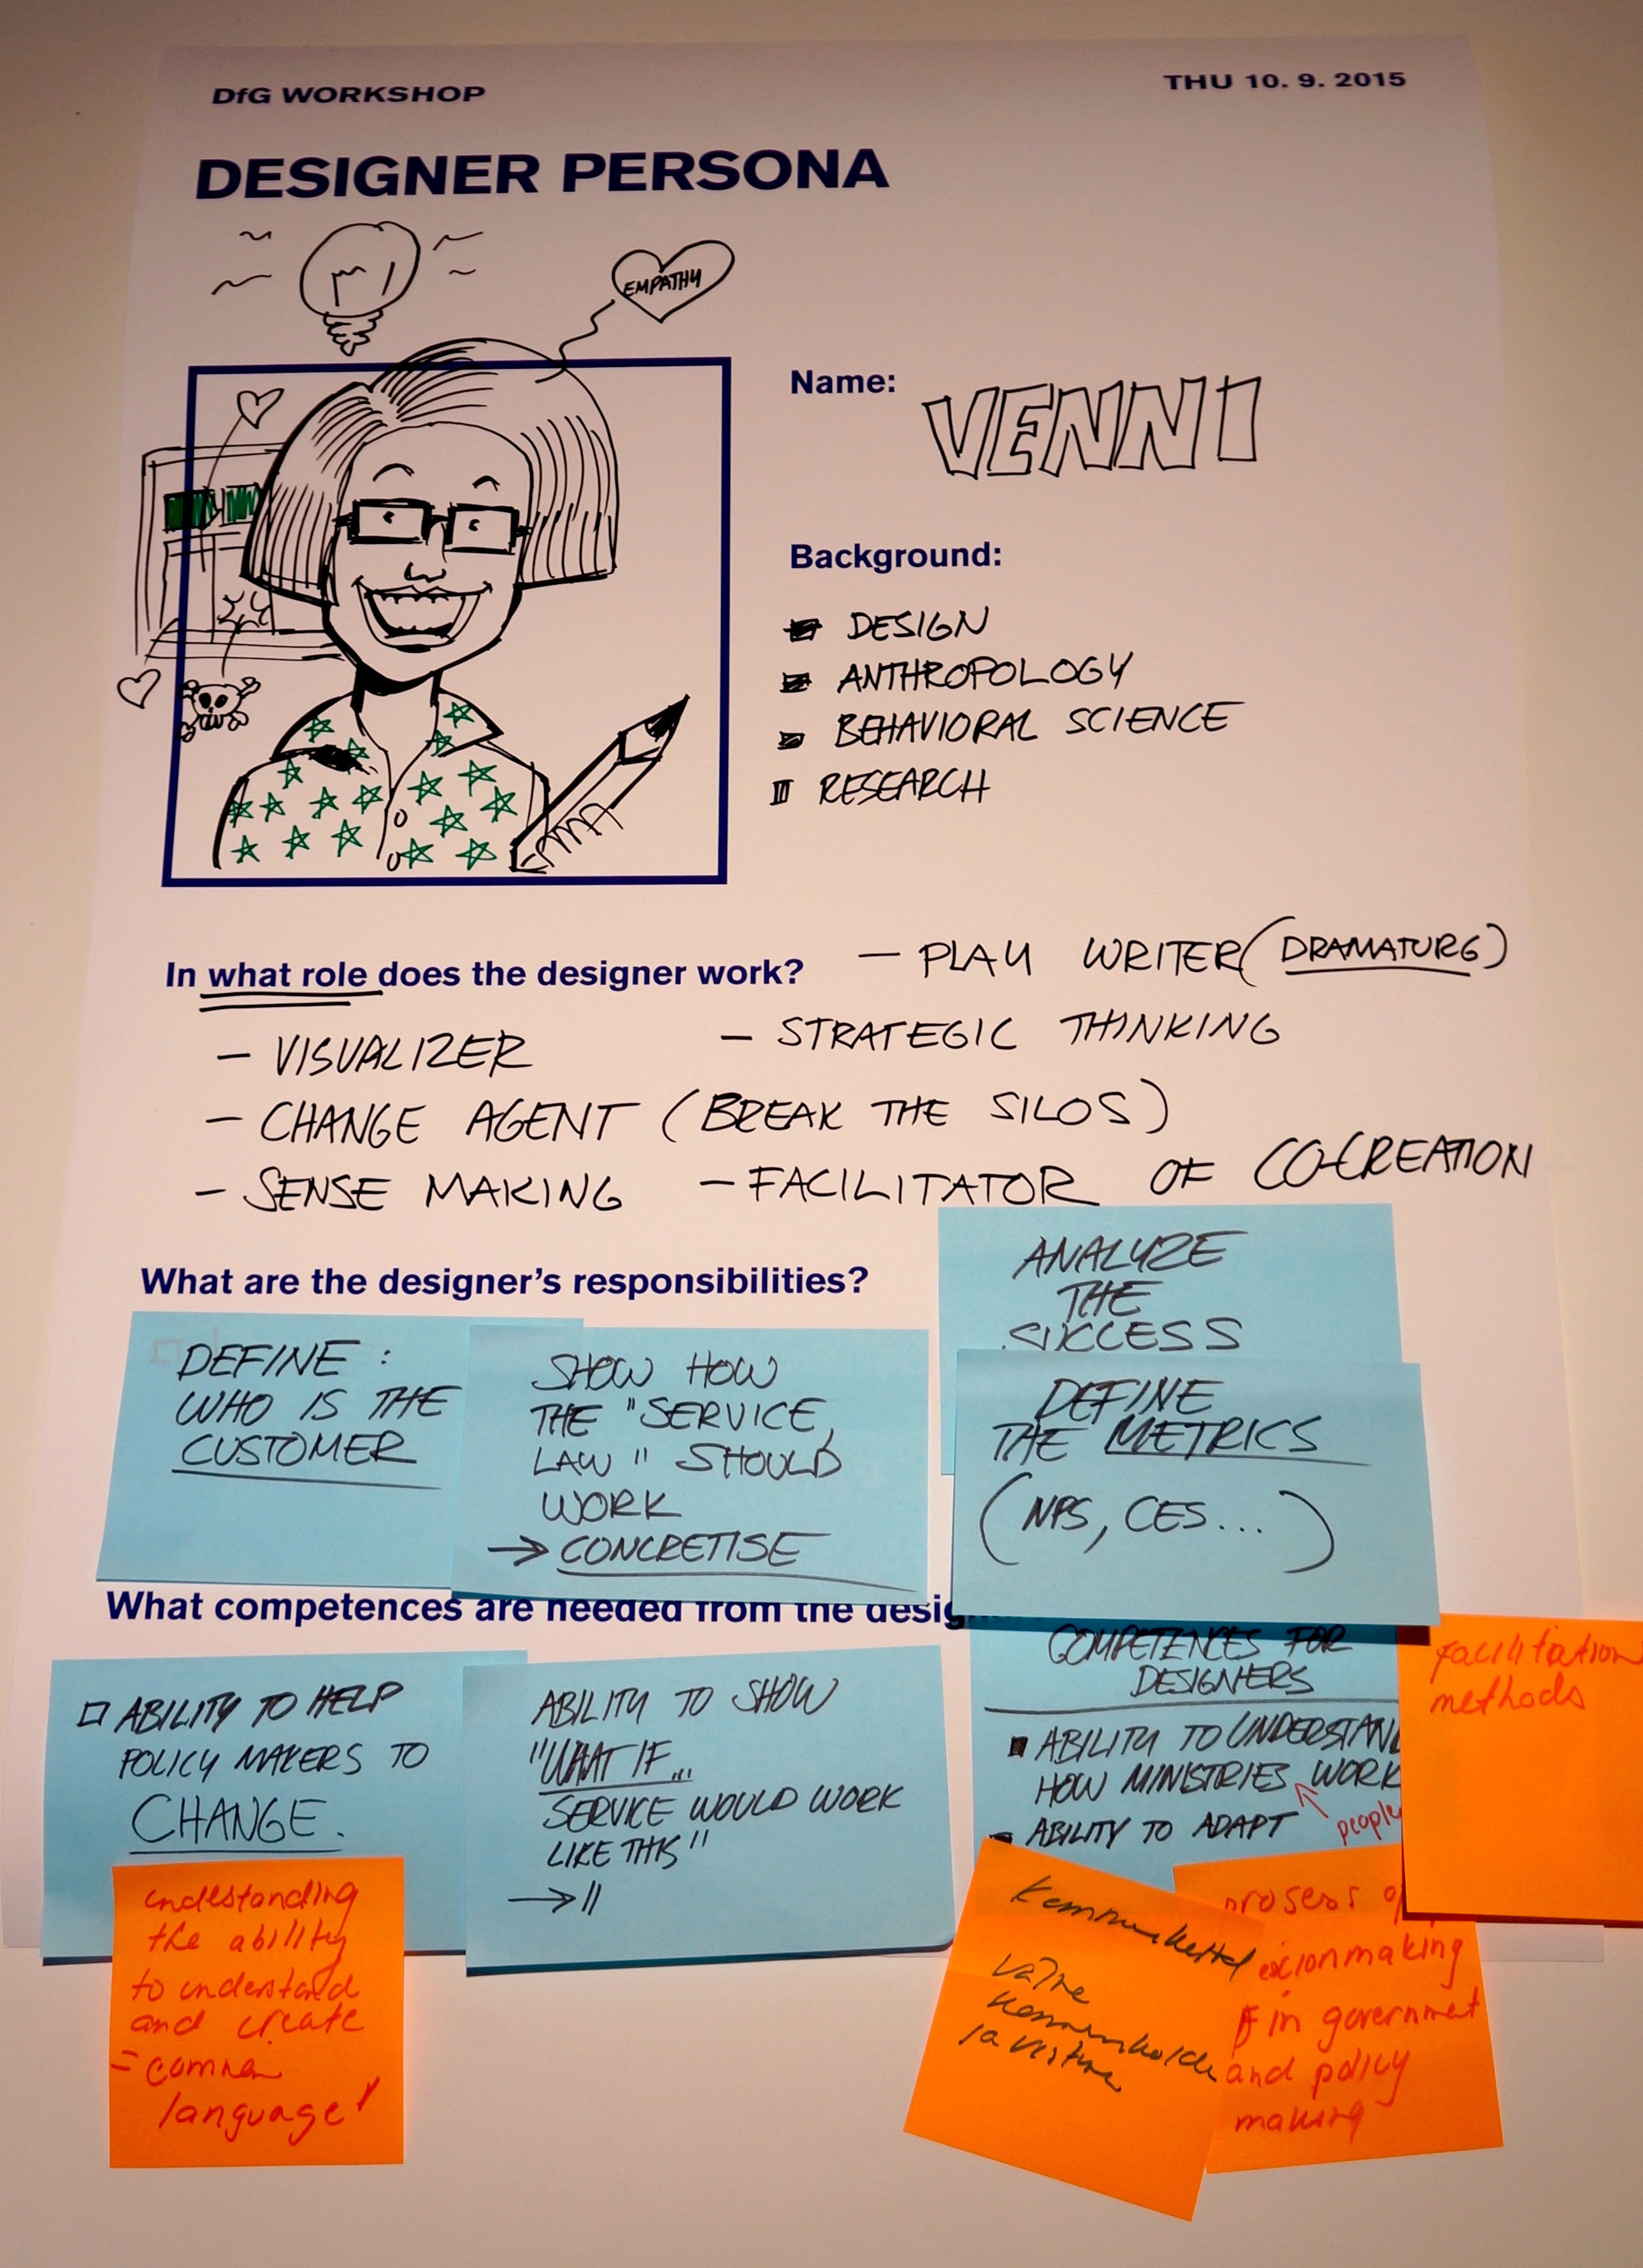 DfG WORKSHOP
THU 10. 9. 2015
DESIGNER PERSONA
EMPATHY
Name: VENNI
Background:
DESIGN
ANTHROPOLOGY
BEHAVIORAL SCIENCE
RESEARCH
In what role does the designer work?
– PLAY WRITER (DRAMATURG)
– VISUALIZER
– STRATEGIC THINKING
– CHANGE AGENT (BREAK THE SILOS)
– SENSE MAKING
– FACILITATOR OF CO-CREATION
What are the designer's responsibilities?
DEFINE :
WHO IS THE
CUSTOMER
SHOW HOW
THE "SERVICE,
LAW" SHOULD
WORK
→ CONCRETISE
ANALYZE
THE
SUCCESS
DEFINE
THE METRICS
(NPS, CES...)
What competences are needed from the desig
ABILITY TO HELP
POLICY MAKERS TO
CHANGE.
ABILITY TO SHOW
"WHAT IF...
SERVICE WOULD WORK
LIKE THIS"
→ ||
COMPETENCES FOR
DESIGNERS
ABILITY TO UNDERSTAN
HOW MINISTRIES WORK
people
ABILITY TO ADAPT
facilitation
methods
understanding
the ability
to understand
and create
language!
proses o
in government
and policy
making